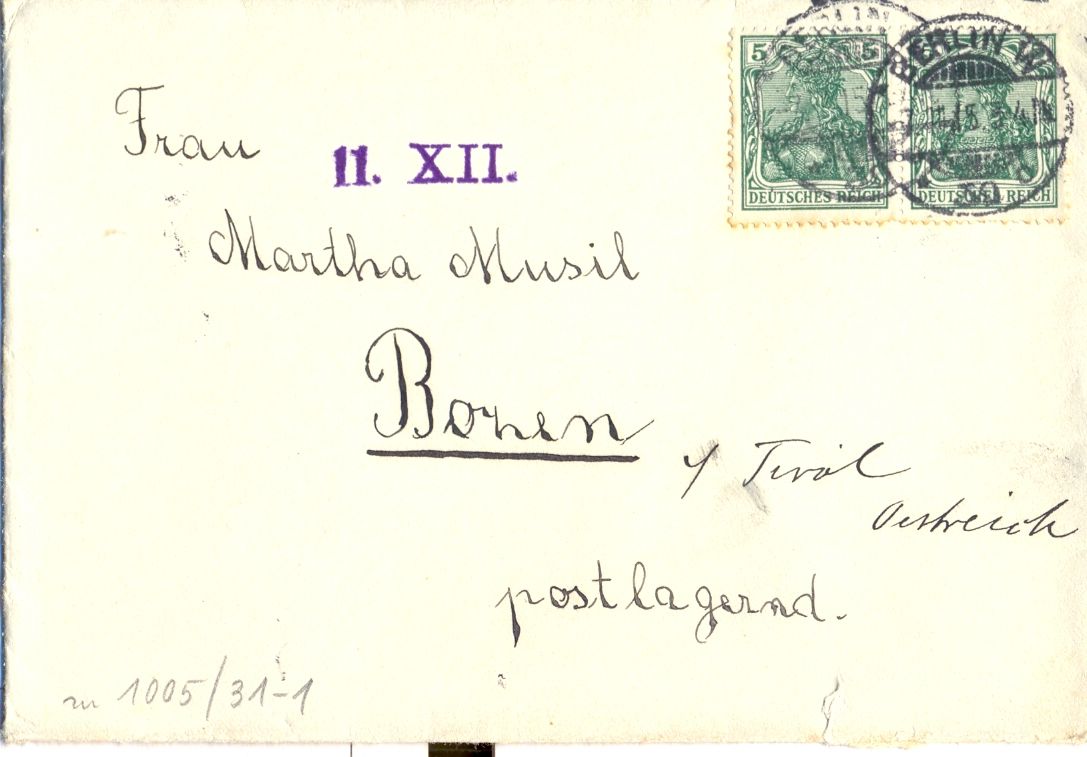 5 5
DEUTSCHES REICH
DEUTSCHES REICH
BERLIN
BERLIN W
Frau
11. XII.
Martha Musil
Bozen
Tirol
Oestreich
postlagernd.
zu 1005/31-1